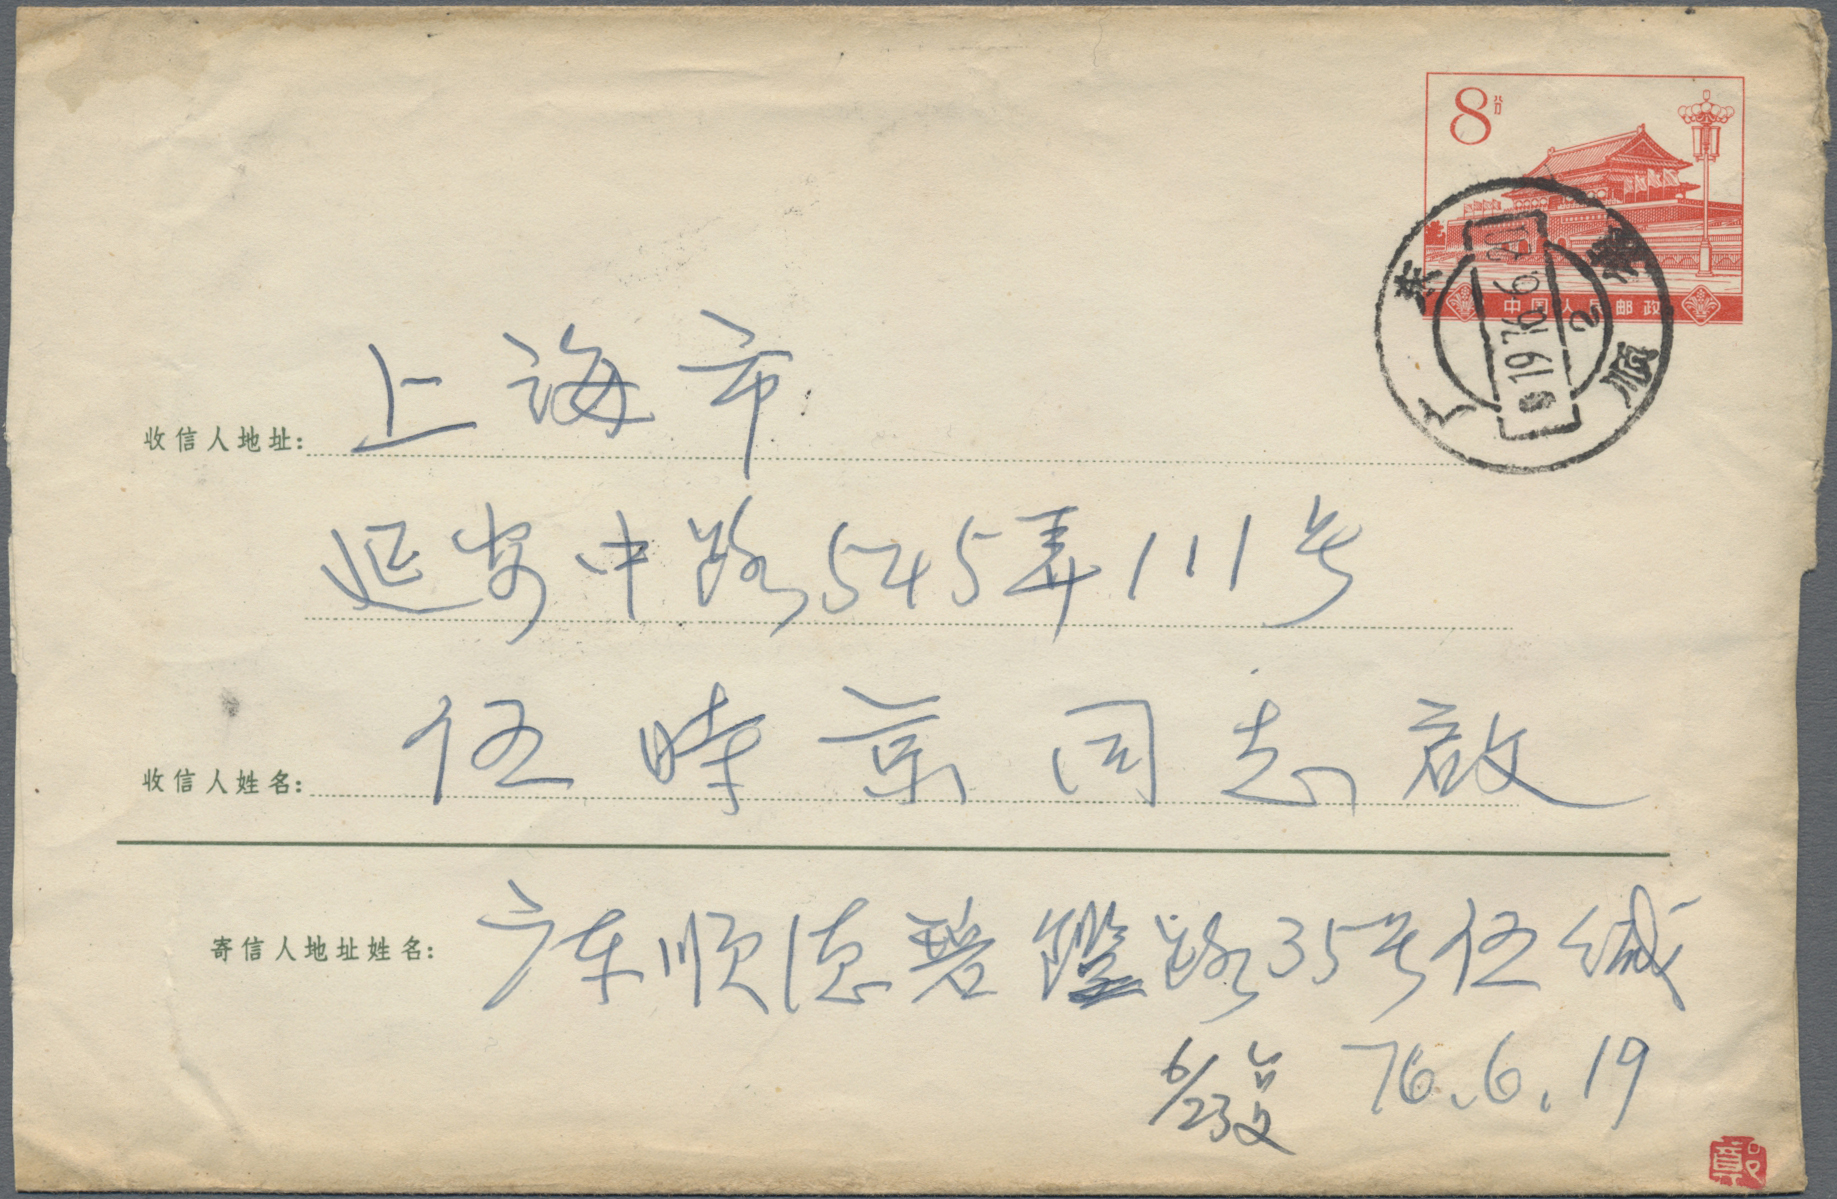 8分
中国人民邮政
广东 顺德
1976.6.20
2
收信人地址: 上海市
延安中路545弄111号
收信人姓名: 伍時京同志啟
寄信人地址姓名: 广东顺德碧鑑路35号伍缄
76.6.19
6/23